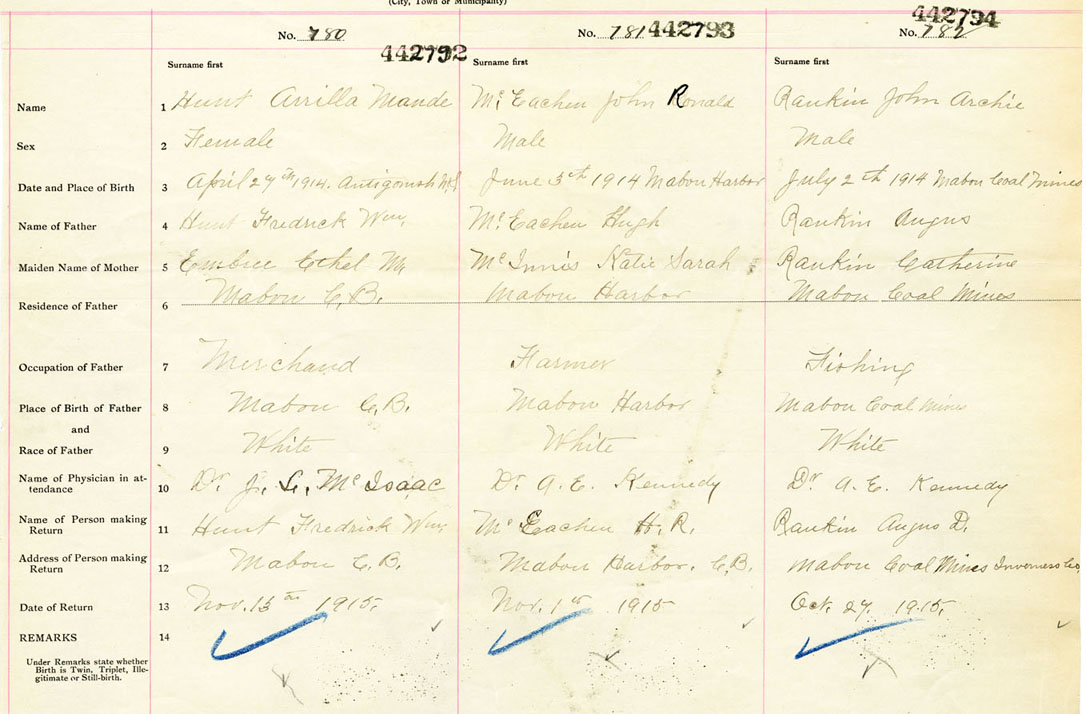 (City, Town or Municipality)
No. 780 No. 781 No. 782
442792 442793 442794
Surname first Surname first Surname first
Name 1 Hunt Arrilla Maude Mc Eachen John Ronald Rankin John Archie
Sex 2 Female Male Male
Date and Place of Birth 3 April 27th 1914. Antigonish N.S June 5th 1914 Mabou Harbor July 2th 1914 Mabou Coal Mines
Name of Father 4 Hunt Fredrick Wm, Mc Eachen Hugh Rankin Angus
Maiden Name of Mother 5 Embree Ethel M, Mc Innis Katie Sarah Rankin Catherine
Residence of Father 6 Mabou C.B. Mabou Harbor Mabou Coal Mines
Occupation of Father 7 Merchand Farmer Fishing
Place of Birth of Father 8 Mabou C.B. Mabou Harbor Mabou Coal Mines
and
Race of Father 9 White White White
Name of Physician in at-
tendance 10 Dr. J. L. Mc Isaac Dr. A. E. Kennedy Dr A. E. Kennedy
Name of Person making
Return 11 Hunt Fredrick Wm, Mc Eachen H. R. Rankin Angus D.
Address of Person making
Return 12 Mabou C.B. Mabou Harbor. C.B. Mabou Coal Mines Inverness Co,
Date of Return 13 Nov. 15th 1915. Nov. 1st 1915 Oct. 27. 1915.
REMARKS 14
Under Remarks state whether
Birth is Twin, Triplet, Ille-
gitimate or Still-birth.